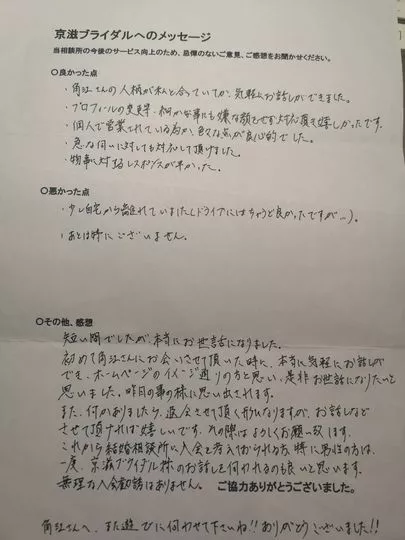 京滋ブライダルへのメッセージ
当相談所の今後のサービス向上のため、忌憚のないご意見、ご感想をお聞かせください。
○良かった点
・角江さんの人柄が私と合っていてか、気軽にお話しができました。
・プロフィールの変更等、細かな事にも嫌な顔をせず対応頂き嬉しかったです。
・個人で営業されている為か、色々な点が良心的でした。
・急な伺いに対しても対応して頂けました。
・物事に対するレスポンスが早かった。
○悪かった点
・少し自宅から離れていました(ドライブにはちょうど良かったですが…)。
・あとは特にございません。
○その他、感想
短い間でしたが、本当にお世話になりました。
初めて角江さんにお会いさせて頂いた時に、本当に気軽にお話しが
でき、ホームページのイメージ通りの方と思い、是非お世話になりたいと
思いました。昨日の事の様に思い出されます。
また、何かありましたら、退会させて頂く形になりますが、お話しなど
させて頂ければ嬉しいです。その際はよろしくお願い致します。
これから結婚相談所に入会を考えておられる方、特に男性の方は、
一度、京滋ブライダル様のお話しを伺われるのも良いと思います。
無理な入会勧誘はありません。 ご協力ありがとうございました。
角江さんへ、また遊びに伺わせて下さいね!!ありがとうございました!!